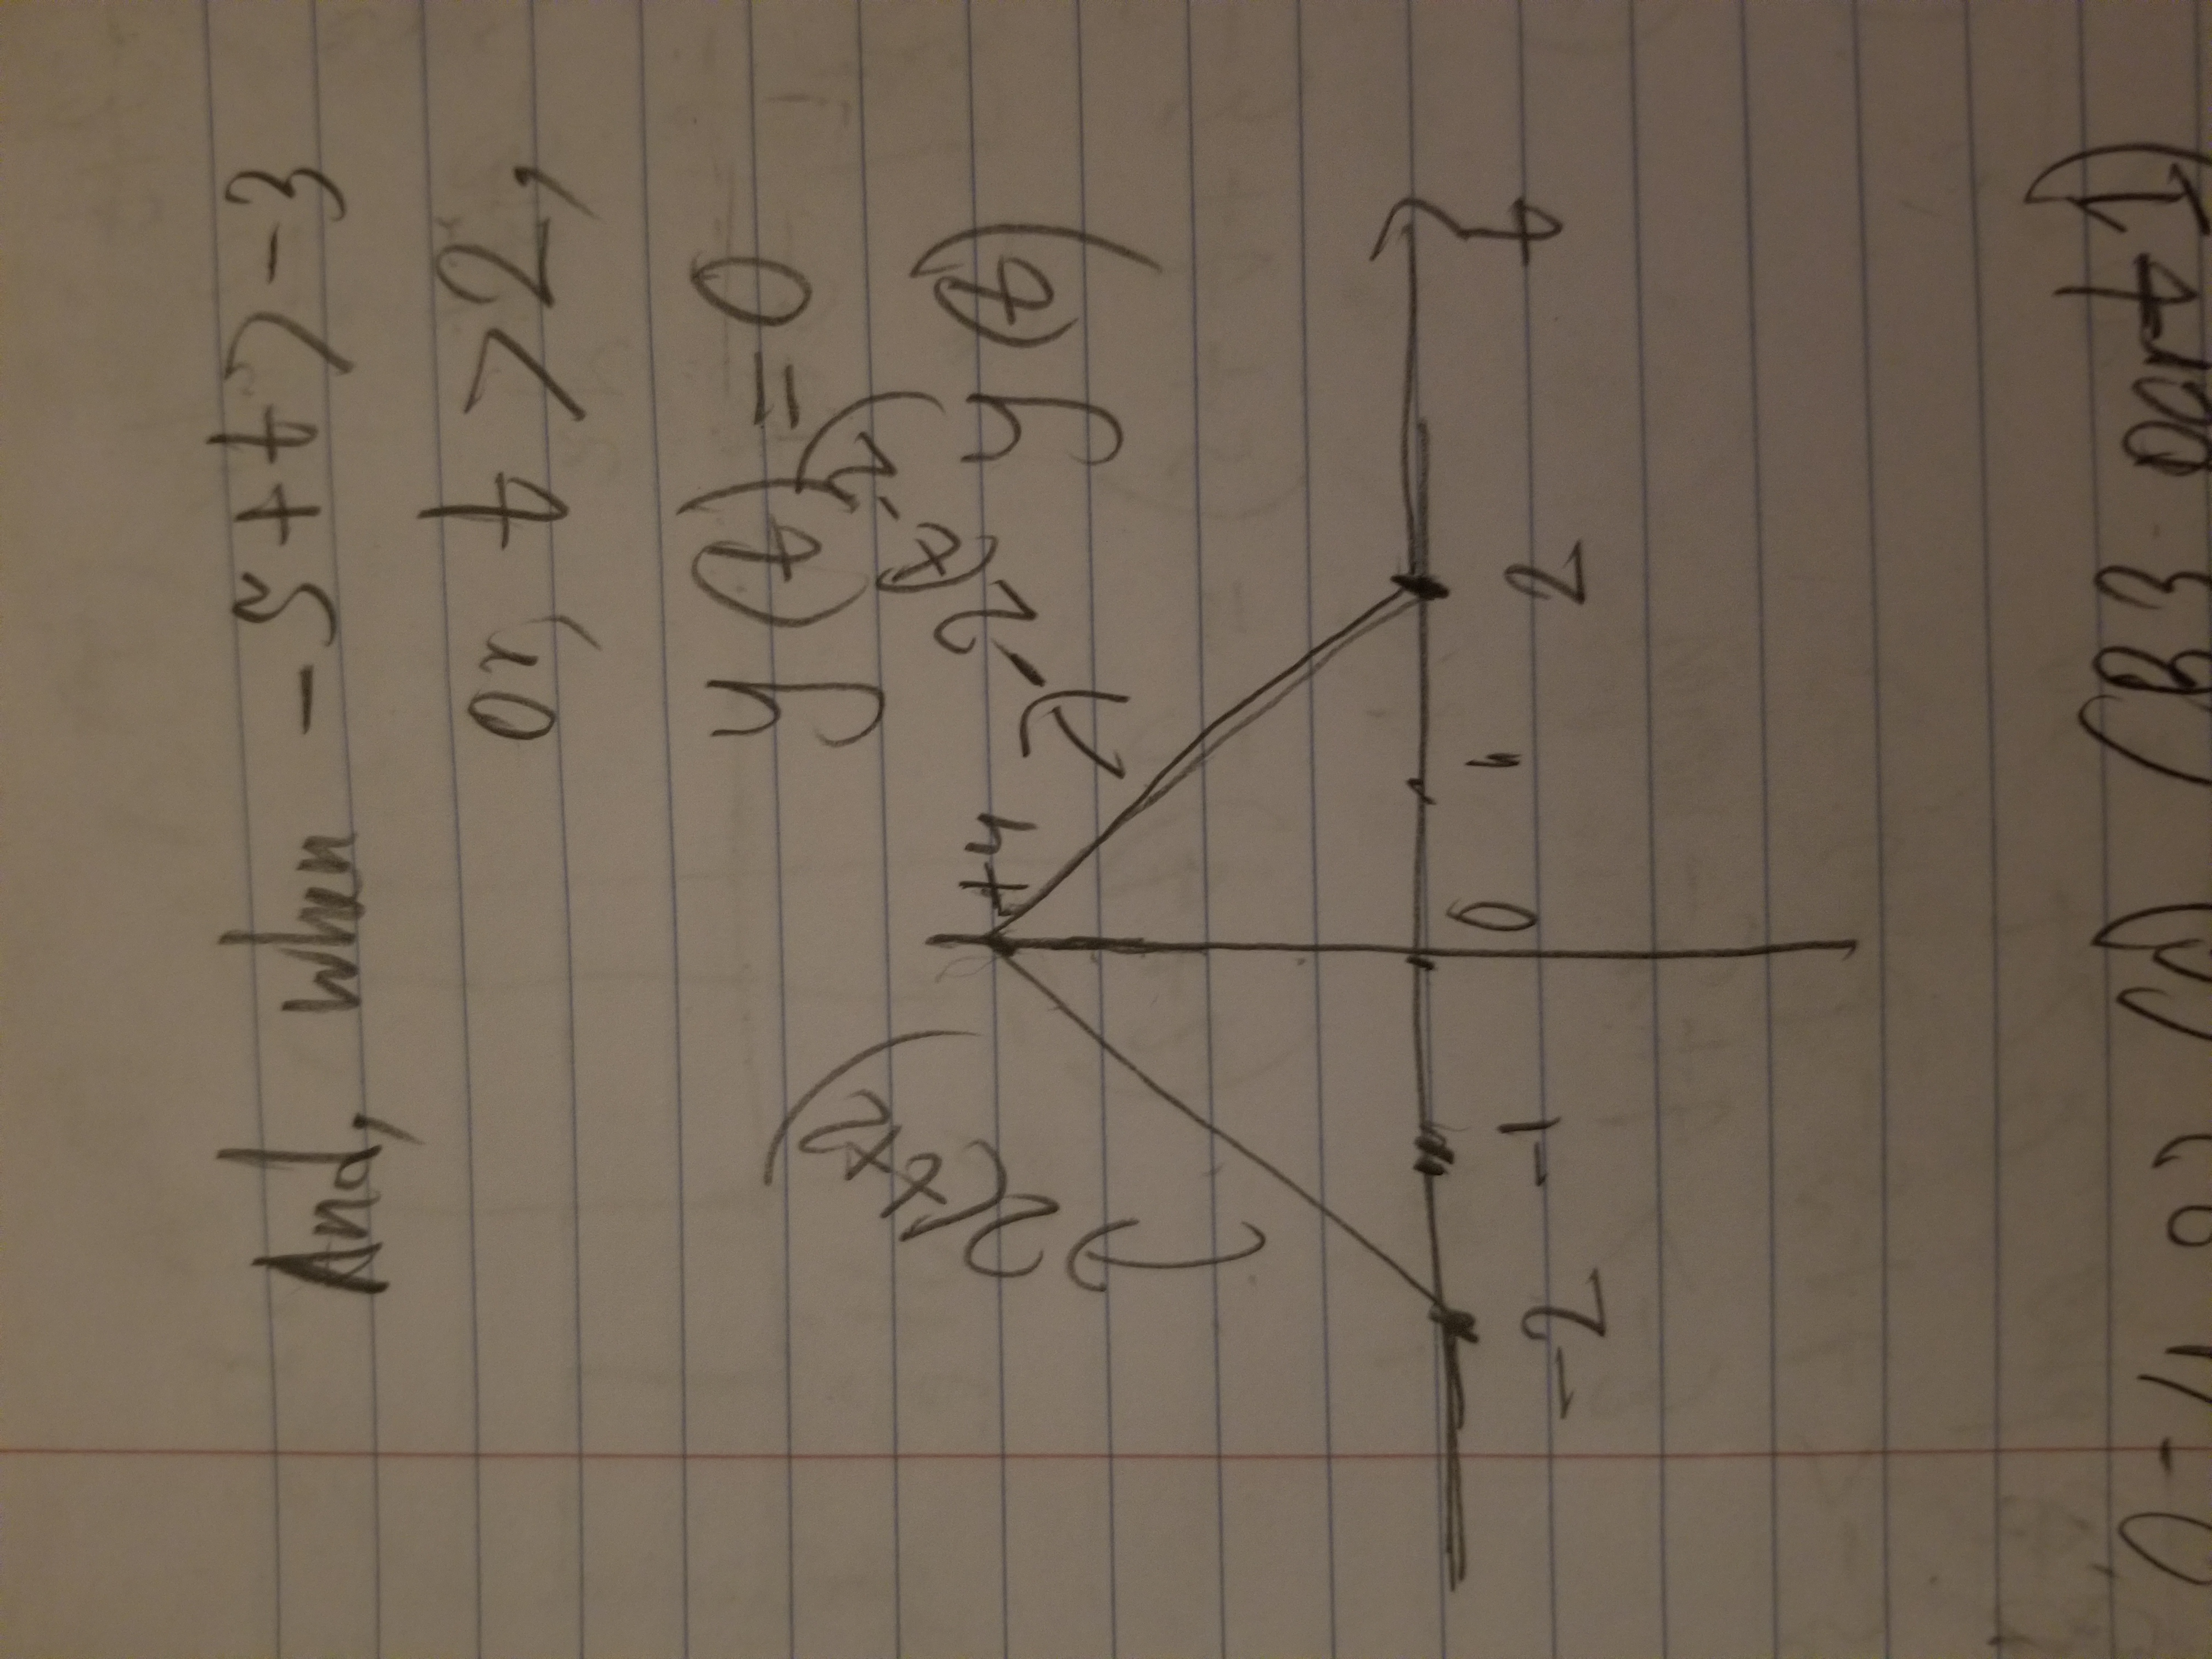 And, when -5+t>-3
or, t >2,
y(t)=0
2(t+2)
-2(t-2)
+4
y(t)
-2 -1 0 1 2 t
(B3 part 1)